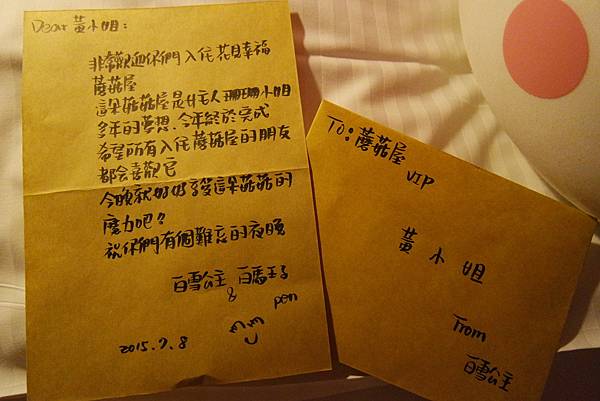 Dear 黃小姐：
非常歡迎你們入住花見幸福
蘑菇屋
這朵菇菇屋是女主人珊珊小姐
多年的夢想、今年終於完成
希望所有入住蘑菇屋的朋友
都會喜歡它
今晚就好好享受這朵菇菇的
魔力吧？
祝你們有個難忘的夜晚
白雪公主 白馬王子
&
pen
2015.7.8
To：蘑菇屋
VIP
黃小姐
From
白雪公主